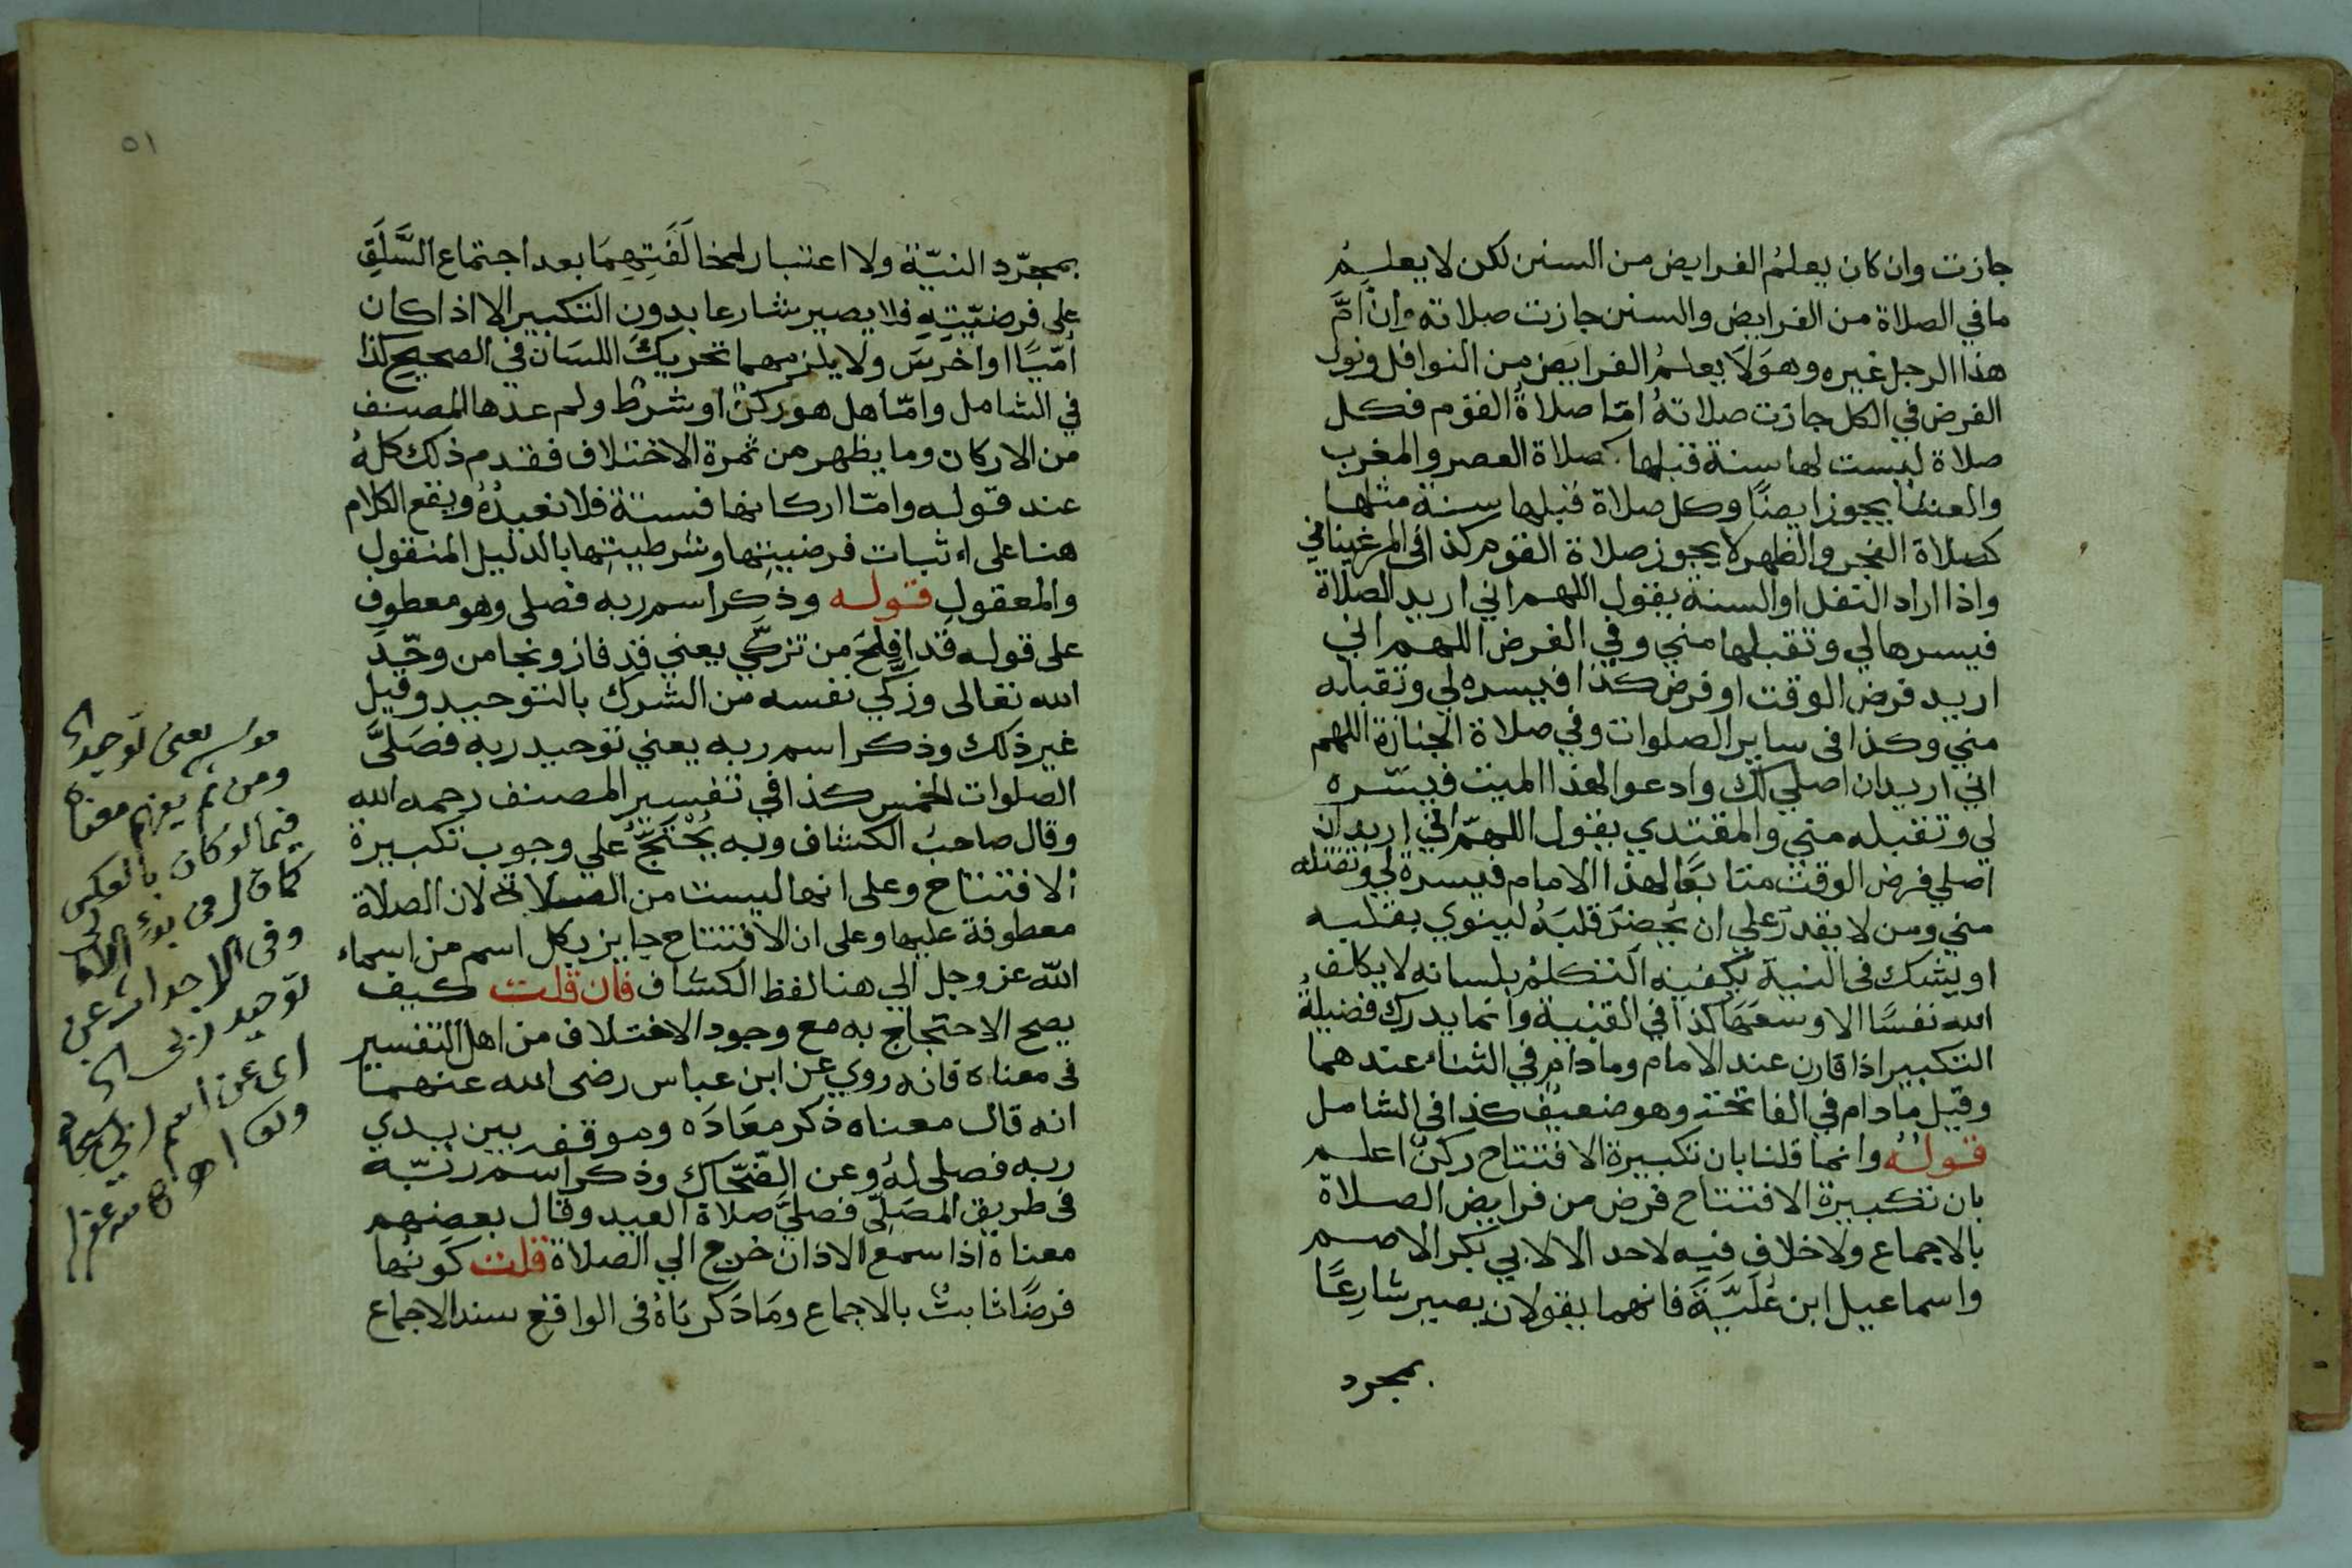 جازت وان كان يعلم الفرايض من السنن لكن لا يعلم
ما في الصلاة من الفرايض والسنن جازت صلاته وان امَّ
هذا الرجل غيره وهو لا يعلم الفرايض من النوافل ونوى
الفرض في الكل جازت صلاته امّا صلاة القوم فكل
صلاة ليست لها سنة قبلها كصلاة العصر والمغرب
والعشا يجوز ايضًا وكل صلاة قبلها سنة مثلها
كصلاة الفجر والظهر لا يجوز صلاة القوم كذا في المرغيناني
واذا اراد النفل او السنة يقول اللهم اني اريد الصلاة
فيسرها لي وتقبلها مني وفي الفرض اللهم اني
اريد فرض الوقت او فرض كذا فيسره لي وتقبله
مني وكذا في ساير الصلوات وفي صلاة الجنازة اللهم
اني اريد ان اصلي لك وادعو لهذا الميت فيسّره
لي وتقبله مني والمقتدي يقول اللهمّ اني اريد ان
اصلي فرض الوقت متابعًا لهذا الامام فيسره لي وتقبله
مني ومن لا يقدر على ان يُحضِرَ قلبَهُ لينوي بقلبه
او يشك في النية يكفيه التكلم بلسانه لا يكلف
الله نفسًا الا وسعَهَا كذا في القنية وانما يدرك فضيلة
التكبير اذا قارن عند الامام وما دام في الثناء عندهما
وقيل ما دام في الفاتحة وهو ضعيف كذا في الشامل
قوله وانما قلنا بان تكبيرة الافتتاح ركن اعلم
بان تكبيرة الافتتاح فرض من فرايض الصلاة
بالاجماع ولا خلاف فيه لاحد الا لابي بكر الاصم
واسماعيل ابن عُلَيَّةَ فانهما يقولان يصير شارعًا
بمجرد
٥١
بمجرّد النيّة ولا اعتبار لمخالَفَتِهِمَا بعد اجتماع السَّلَفِ
على فرضيّتِهِ فلا يصير شارعا بدون التكبير الا اذا كان
اُمّيًا او اخرسَ ولا يلزمهما تحريك اللسان في الصحيح كذا
في الشامل وامّا هل هو ركن او شرط ولم عدها المصنف
من الاركان وما يظهر من ثمرة الاختلاف فقد مر ذلك كله
عند قوله وامّا اركانها فستة فلا نعيدُهُ ويقع الكلام
هنا على اثبات فرضيتها وشرطيتها بالدليل المنقول
والمعقول قوله وذكر اسم ربه فصلى وهو معطوف
على قوله قد افلح من تزكّي يعني قد فاز ونجا من وحّد
الله تعالى وزكّي نفسه من الشرك بالتوحيد وقيل
غير ذلك وذكر اسم ربه يعني توحيد ربه فصَلَّى
الصلوات الخمس كذا في تفسير المصنف رحمه الله
وقال صاحبُ الكشاف وبه يُحْتَجُّ علي وجوب تكبيرة
الافتتاح وعلى انها ليست من الصلاة لان الصلاة
معطوفة عليها وعلى ان الافتتاح جايز بكل اسم من اسماء
الله عز وجل الي هنا لفظ الكشاف فان قلت كيف
يصح الاحتجاج به مع وجود الاختلاف من اهل التفسير
في معناه فانه روي عن ابن عباس رضى الله عنهما
انه قال معناه ذكر معَادَه وموقفه بين يدي
ربه فصلى لهُ وعن الضّحّاك وذكر اسم ربّه
في طريق المصَلّى فصليَّ صلاة العيد وقال بعضهم
معناه اذا سمع الاذان خرج الي الصلاة قلت كونُها
فرضًا ثابتٌ بالاجماع ومَا ذكرنَاهُ في الواقع سند الاجماع
يعنى توحيد
ومن ثم معناه
فيما لو كان بالعكس
كما
وفى
توحيد ربى
اى عن اسم ربى